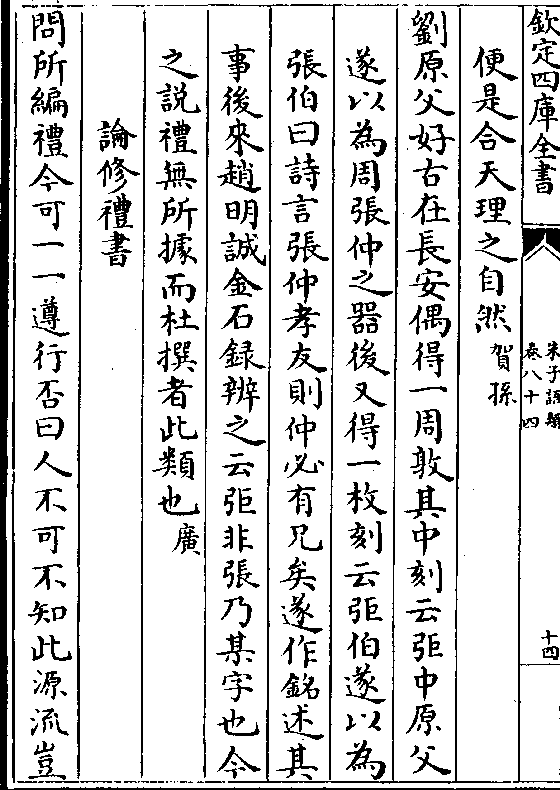 欽定四庫全書
朱子語類
卷八十四
十四
便是合天理之自然賀孫
劉原父好古在長安偶得一周敦其中刻云弡中原父
遂以為周張仲之器後又得一枚刻云弡伯遂以為
張伯曰詩言張仲孝友則仲必有兄矣遂作銘述其
事後來趙明誠金石録辨之云弡非張乃某字也今
之説禮無所據而杜撰者此類也廣
論修禮書
問所編禮今可一一遵行否曰人不可不知此源流豈